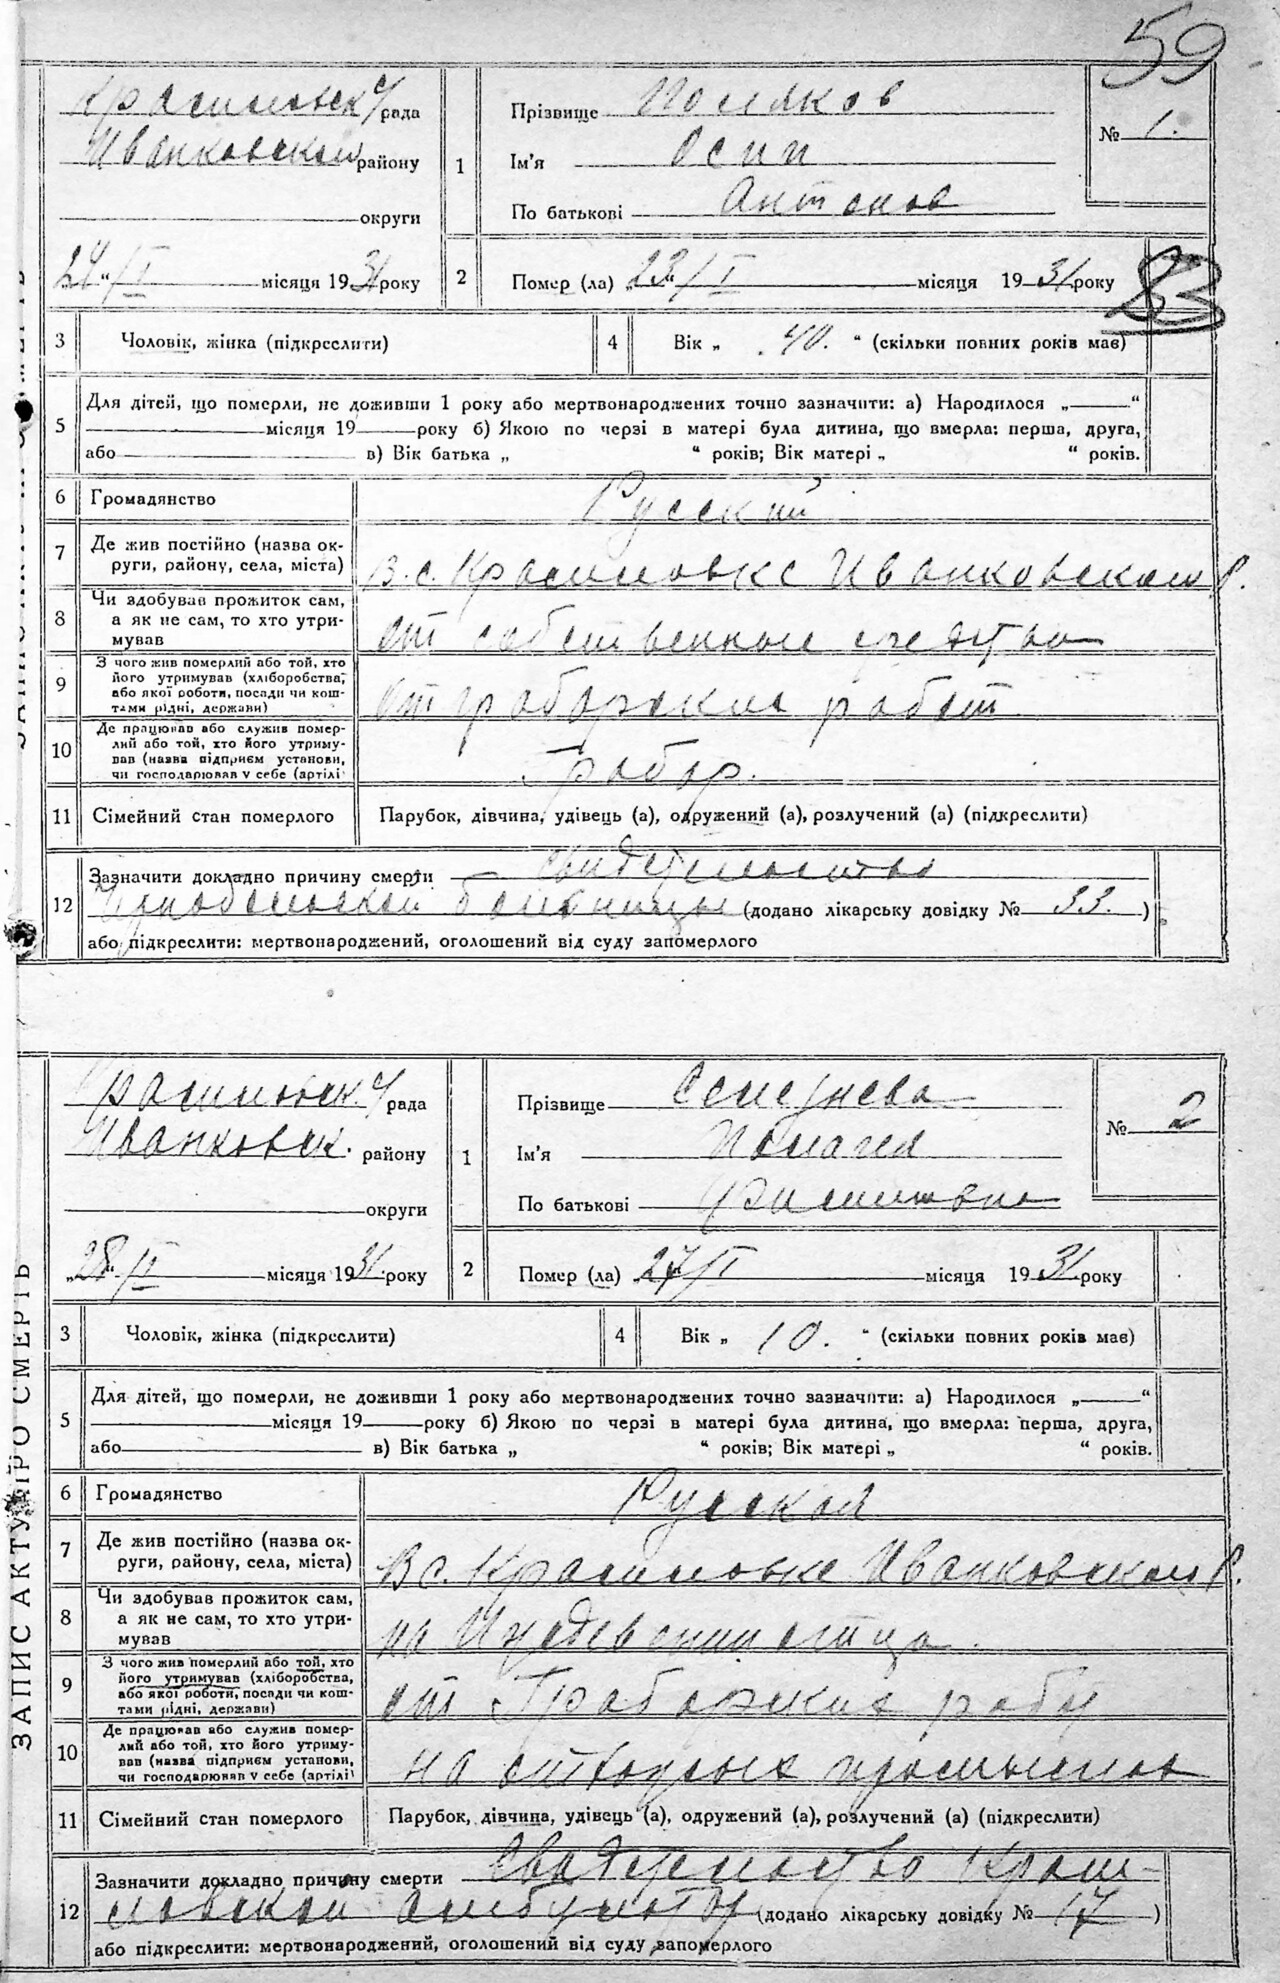 59
Красиловск с/рада
Иванковского району
округи
"24"/I місяця 1931 року
1
Прізвище Поляков
Ім'я Осип
По батькові Антонов
№ 1.
2
Помер (ла) "23"/I місяця 1931 року
3
Чоловік, жінка (підкреслити)
4
Вік „ 40. “ (скільки повних років має)
5
Для дітей, що померли, не доживши 1 року або мертвонароджених точно зазначити: а) Народилося „ “
місяця 19 року б) Якою по черзі в матері була дитина, що вмерла: перша, друга,
або в) Вік батька „ “ років; Вік матері „ “ років.
6
Громадянство
Русский
7
Де жив постійно (назва ок-
руги, району, села, міста)
В. с. Красиловке Иванковского р.
8
Чи здобував прожиток сам,
а як не сам, то хто утри-
мував
от собственного средства
9
З чого жив померлий або той, хто
його утримував (хліборобства,
або якої роботи, посади чи кош-
тами рідні, держави)
От грабарских работ
10
Де працював або служив помер-
лий або той, хто його утриму-
вав (назва підприєм установи,
чи господарював у себе (артілі
Грабар.
11
Сімейний стан померлого
Парубок, дівчина, удівець (а), одружений (а), розлучений (а) (підкреслити)
12
Зазначити докладно причину смерти
Чернобыльской больницы (додано лікарську довідку № 33. )
або підкреслити: мертвонароджений, оголошений від суду запомерлого
ЗАПИС АКТУ ПРО СМЕРТЬ
Красиловск. с/рада
Иванковск. району
округи
"28"/I місяця 1931 року
1
Прізвище Селезнева
Ім'я Пелагея
По батькові Филиповна
№ 2
2
Помер (ла) "27"/I місяця 1931 року
3
Чоловік, жінка (підкреслити)
4
Вік „ 10. “ (скільки повних років має)
5
Для дітей, що померли, не доживши 1 року або мертвонароджених точно зазначити: а) Народилося „ “
місяця 19 року б) Якою по черзі в матері була дитина, що вмерла: перша, друга,
або в) Вік батька „ “ років; Вік матері „ “ років.
6
Громадянство
Русская
7
Де жив постійно (назва ок-
руги, району, села, міста)
В с. Красиловке Иванковского р.
8
Чи здобував прожиток сам,
а як не сам, то хто утри-
мував
на Иждевении отца.
9
З чого жив померлий або той, хто
його утримував (хліборобства,
або якої роботи, посади чи кош-
тами рідні, держави)
от Грабарских работ
10
Де працював або служив помер-
лий або той, хто його утриму-
вав (назва підприєм установи,
чи господарював у себе (артілі
на отхожих промыслах
11
Сімейний стан померлого
Парубок, дівчина, удівець (а), одружений (а), розлучений (а) (підкреслити)
12
Зазначити докладно причину смерти Свидетельство Краси-
ловской (додано лікарську довідку № 17 )
або підкреслити: мертвонароджений, оголошений від суду запомерлого